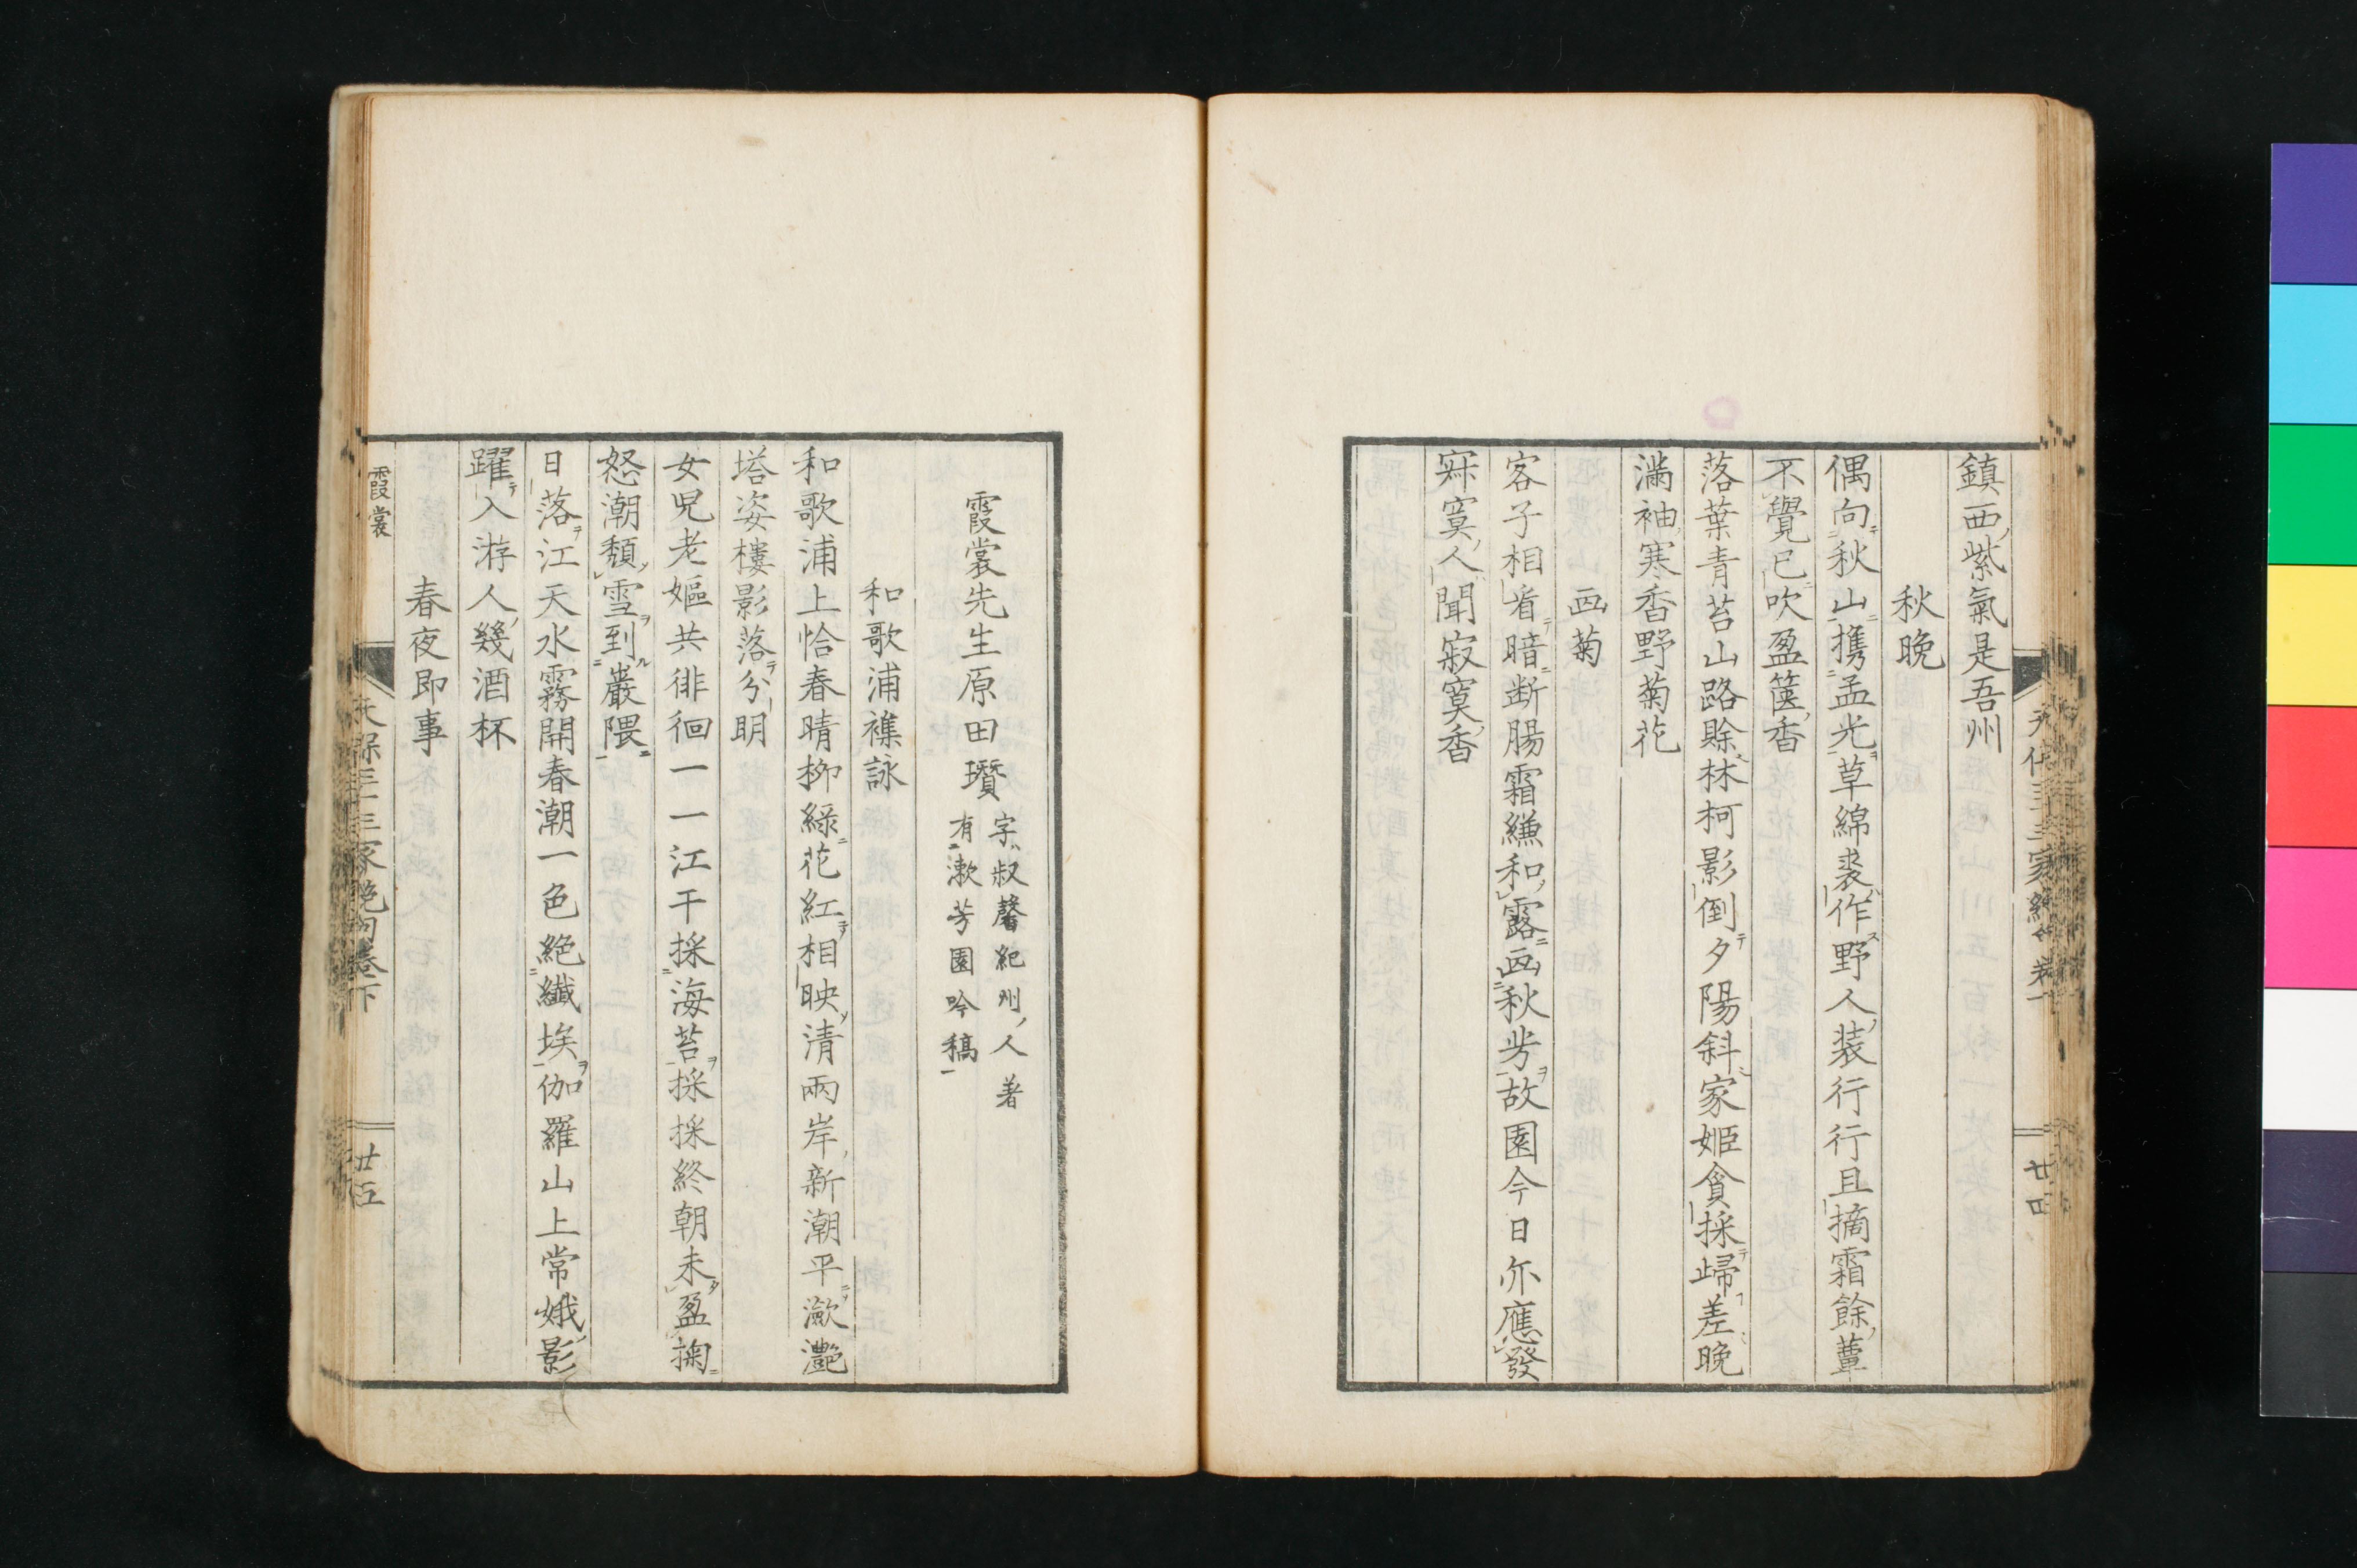 鎮西紫氣是吾州
秋晩
偶向秋山攜孟光草綿裘作野人装行行且摘霜餘蕈
不覺已吹盈篋香
落葉青苔山路賖林柯影倒夕陽斜家姫貪採歸差晩
滿袖寒香野菊花
画菊
客子相看暗断腸霜縑和露画秋芳故園今日亦應發
寂寞人聞寂寞香
天保三十三家絶句卷下
廿四
霞裳先生原田瓚
字叔馨紀州人著
有漱芳園吟稿
和歌浦襍詠
和歌浦上恰春晴柳緑花紅相映清兩岸新潮平瀲灔
塔姿樓影落分明
女児老嫗共徘徊一一江干採海苔採採終朝未盈掬
怒潮頽雪到巖隈
日落江天水霧開春潮一色絶纎埃伽羅山上常娥影
躍入游人幾酒杯
春夜即事
霞裳
天保三十三家絶句卷下
廿五